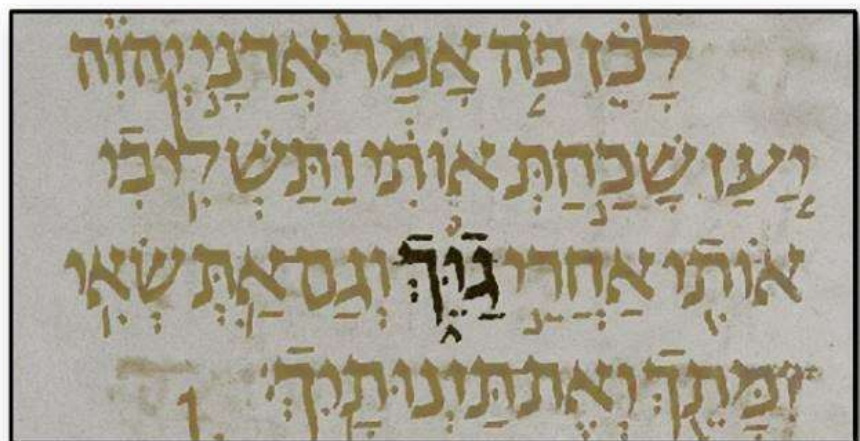 לָכֵן כֹּה אָמַר אֲדֹנָי יְהוִֹה
יַעַן שָׁכַחַתְּ אוֹתִי וַתַּשְׁלִיכִי
אוֹתִי אַחֲרֵי גַוֵּךְ וְגַם אַתְּ שְׂאִי
זִמָּתֵךְ וְאֶת תַּזְנוּתָיִךְ